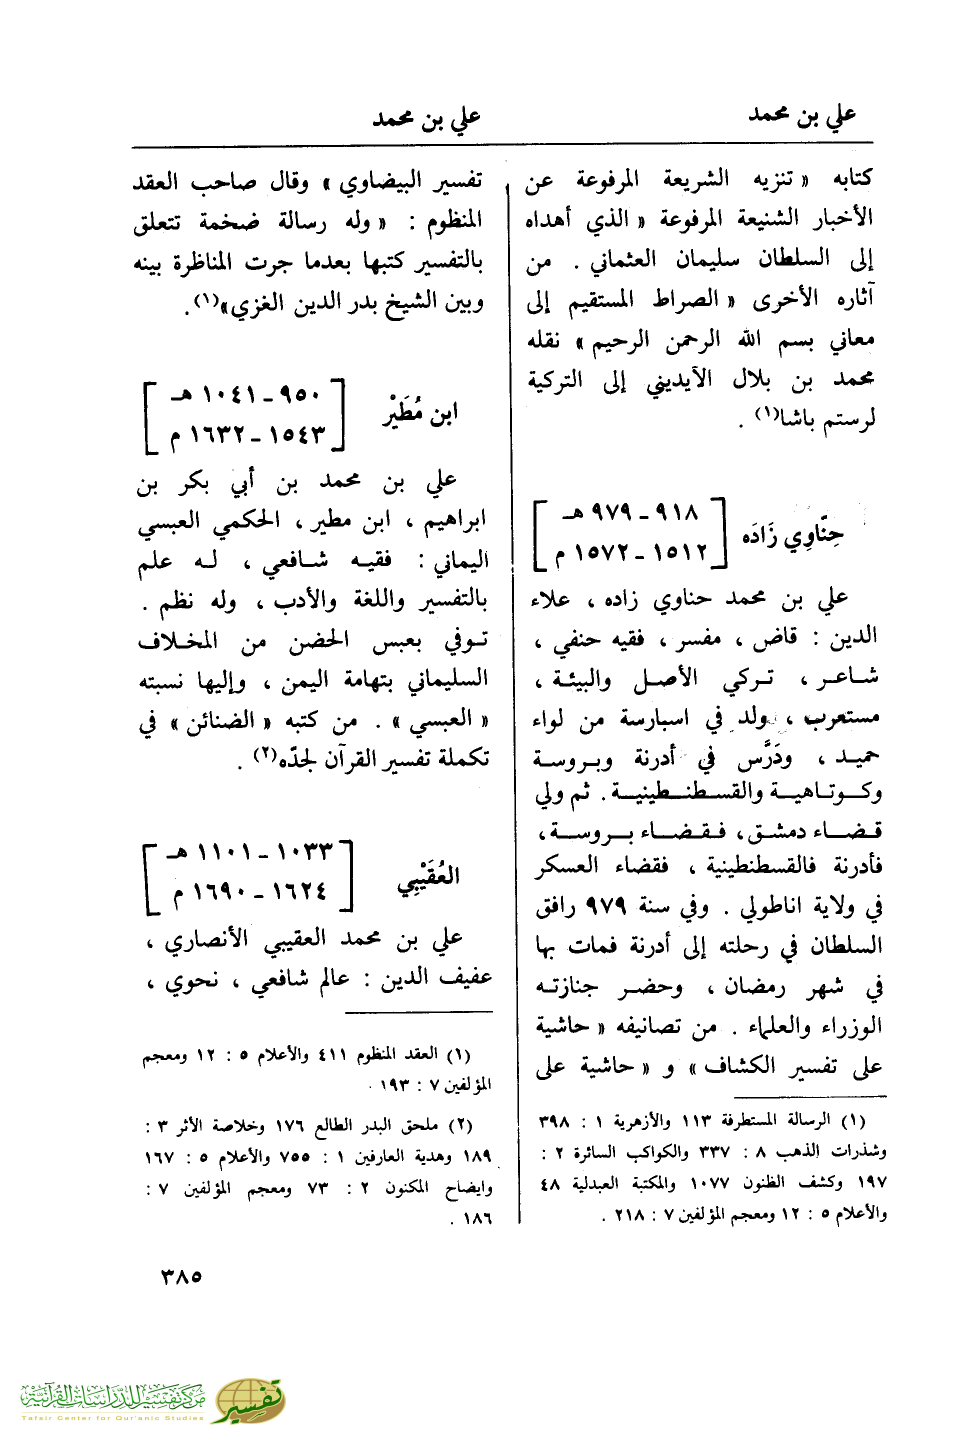 علي بن محمد
علي بن محمد
كتابه « تنزيه الشريعة المرفوعة عن
الأخبار الشنيعة المرفوعة « الذي أهداه
إلى السلطان سليمان العثماني . من
آثاره الأخرى « الصراط المستقيم إلى
معاني بسم الله الرحمن الرحيم » نقله
محمد بن بلال الآيديني إلى التركية
لرستم باشا(١) .
حِنّاوِي زَادَه
[ ٩١٨ - ٩٧٩ هـ
١٥١٢ - ١٥٧٢ م ]
علي بن محمد حناوي زاده ، علاء
الدين : قاض ، مفسر ، فقيه حنفي ،
شاعر ، تركي الأصل والبيئة ،
مستعرب ، ولد في اسبارسة من لواء
حميد ، ودَرَّس في أدرنة وبروسة
وكوتاهية والقسطنطينية . ثم ولي
قضاء دمشق ، فقضاء بروسة ،
فأدرنة فالقسطنطينية ، فقضاء العسكر
في ولاية اناطولي . وفي سنة ٩٧٩ رافق
السلطان في رحلته إلى أدرنة فمات بها
في شهر رمضان ، وحضر جنازته
الوزراء والعلماء . من تصانيفه « حاشية
على تفسير الكشاف » و « حاشية على
(١) الرسالة المستطرفة ١١٣ والأزهرية ١ : ٣٩٨
وشذرات الذهب ٨ : ٣٣٧ والكواكب السائرة ٢ :
١٩٧ وكشف الظنون ١٠٧٧ والمكتبة العبدلية ٤٨
والأعلام ٥ : ١٢ ومعجم المؤلفين ٧ : ٢١٨ .
تفسير البيضاوي » وقال صاحب العقد
المنظوم : « وله رسالة ضخمة تتعلق
بالتفسير كتبها بعدما جرت المناظرة بينه
وبين الشيخ بدر الدين الغزي»(١) .
ابن مُطَيْر
[ ٩٥٠ - ١٠٤١ هـ
١٥٤٣ - ١٦٣٢ م ]
علي بن محمد بن أبي بكر بن
ابراهيم ، ابن مطير ، الحكمي العبسي
اليماني : فقيه شافعي ، له علم
بالتفسير واللغة والأدب ، وله نظم .
توفي بعبس الحضن من المخلاف
السليماني بتهامة اليمن ، وإليها نسبته
« العبسي » . من كتبه « الضنائن » في
تكملة تفسير القرآن لجدّه(٢) .
العُقَيْبِي
[ ١٠٣٣ - ١١٠١ هـ
١٦٢٤ - ١٦٩٠ م ]
علي بن محمد العقيبي الأنصاري ،
عفيف الدين : عالم شافعي ، نحوي ،
(١) العقد المنظوم ٤١١ والأعلام ٥ : ١٢ ومعجم
المؤلفين ٧ : ١٩٣ .
(٢) ملحق البدر الطالع ١٧٦ وخلاصة الأثر ٣ :
١٨٩ وهدية العارفين ١ : ٧٥٥ والأعلام ٥ : ١٦٧
وايضاح المكنون ٢ : ٧٣ ومعجم المؤلفين ٧ :
١٨٦ .
٣٨٥
مركز تفسير للدراسات القرآنية
Tafsir Center for Qur'anic Studies
تفسير